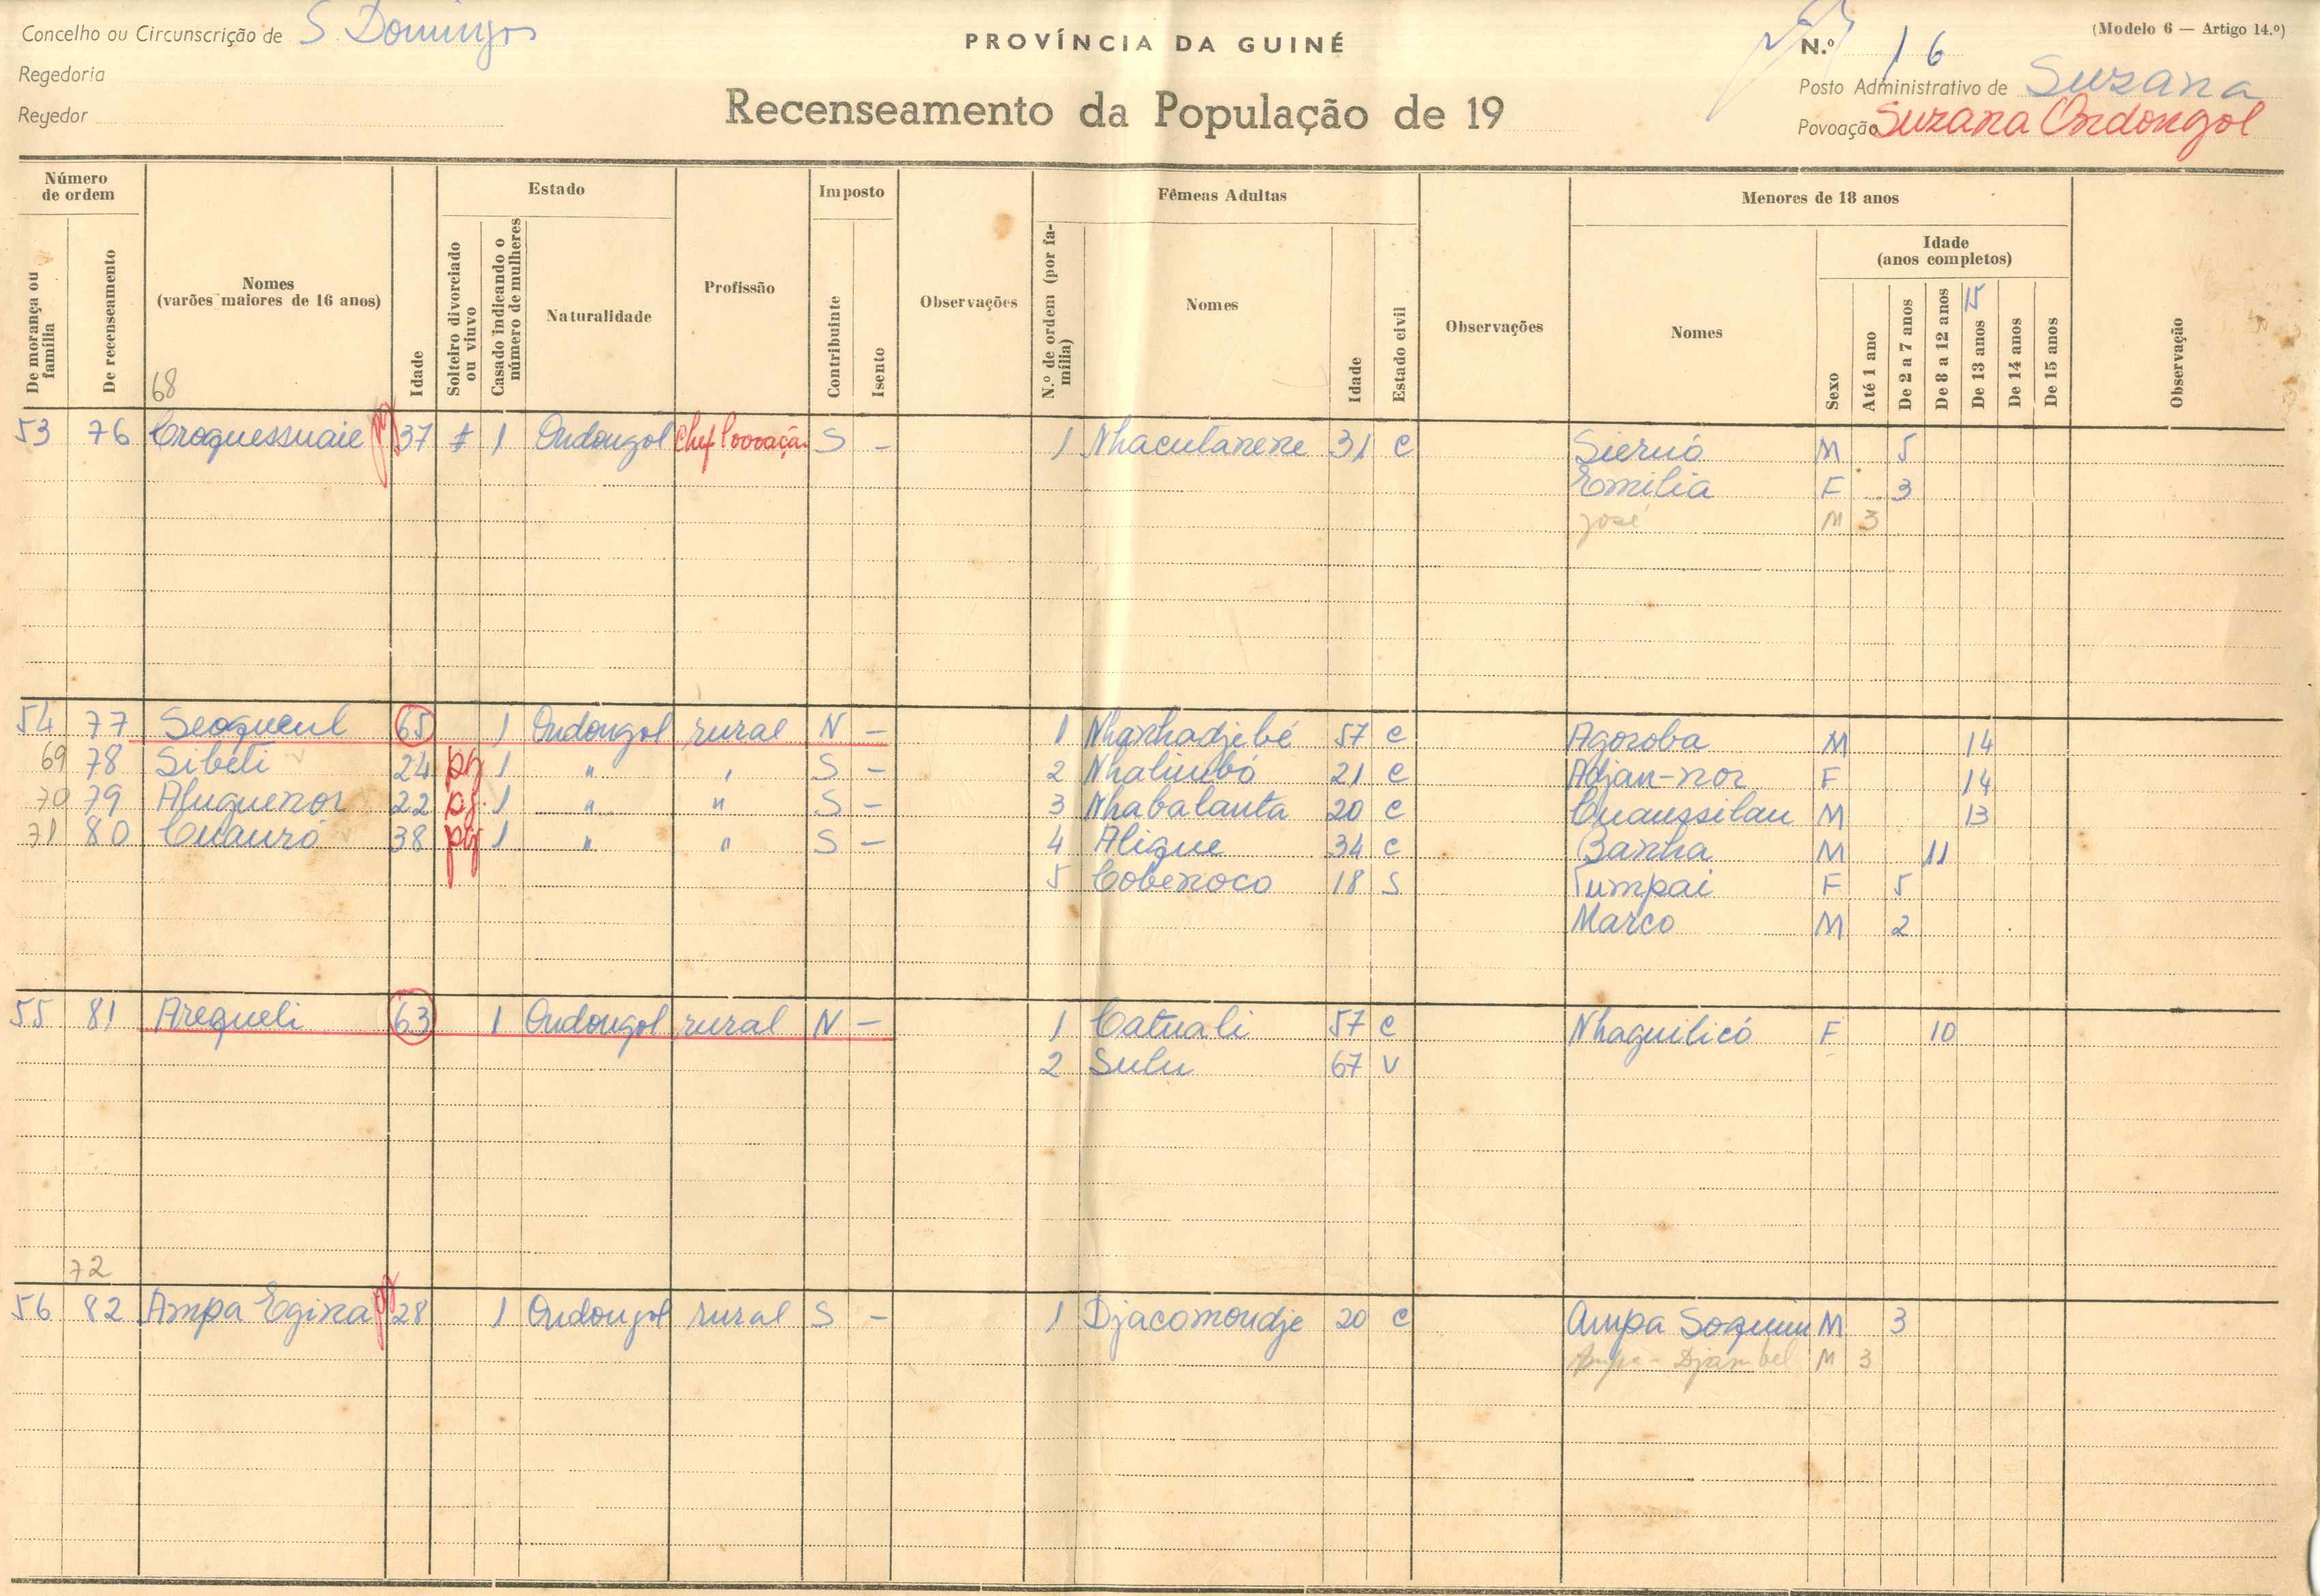 Concelho ou Circunscrição de S. Domingos
PROVÍNCIA DA GUINÉ
N.º 16
(Modelo 6 — Artigo 14.º)
Regedoria
Posto Administrativo de Suzana
Regedor
Recenseamento da População de 19
Povoação Suzana Ondongol
Número de ordem
Estado
Imposto
Fêmeas Adultas
Menores de 18 anos
De morança ou família
De recenseamento
Nomes (varões maiores de 16 anos)
Idade
Solteiro divorciado ou viuvo
Casado indicando o número de mulheres
Naturalidade
Profissão
Contribuinte
Isento
Observações
N.º de ordem (por família)
Nomes
Idade
Estado civil
Observações
Nomes
Sexo
Idade (anos completos)
Até 1 ano
De 2 a 7 anos
De 8 a 12 anos
15
De 13 anos
De 14 anos
De 15 anos
Observação
68
53 76 Croquessuaie pg 37 1 Ondongol Chef Povoação S - 1 Nhacutanene 31 C Sieruó M 5
Emilia F 3
José M 3
54 77 Seoqueul 65 1 Ondongol rural N - 1 Nhanhadjebé 57 C Agoroba M 14
69 78 Sibeti 24 pg 1 " " S - 2 Nhalimbó 21 C Adjan-nor F 14
70 79 Aluguenor 22 pg. 1 " " S - 3 Nhabalanta 20 C Cuaussilau M 13
71 80 Cuauró 38 pg 1 " " S - 4 Aligue 34 C Banha M 11
5 Cobenoco 18 S Tumpai F 5
Marco M 2
55 81 Arequeli 63 1 Ondongol rural N - 1 Catuali 57 C Nhaguilicó F 10
2 Sulu 67 V
72
56 82 Ampa Egina pg 28 1 Ondongol rural S - 1 Djacomondje 20 C Ampa Soquim M 3
Ampa - Djambel M 3